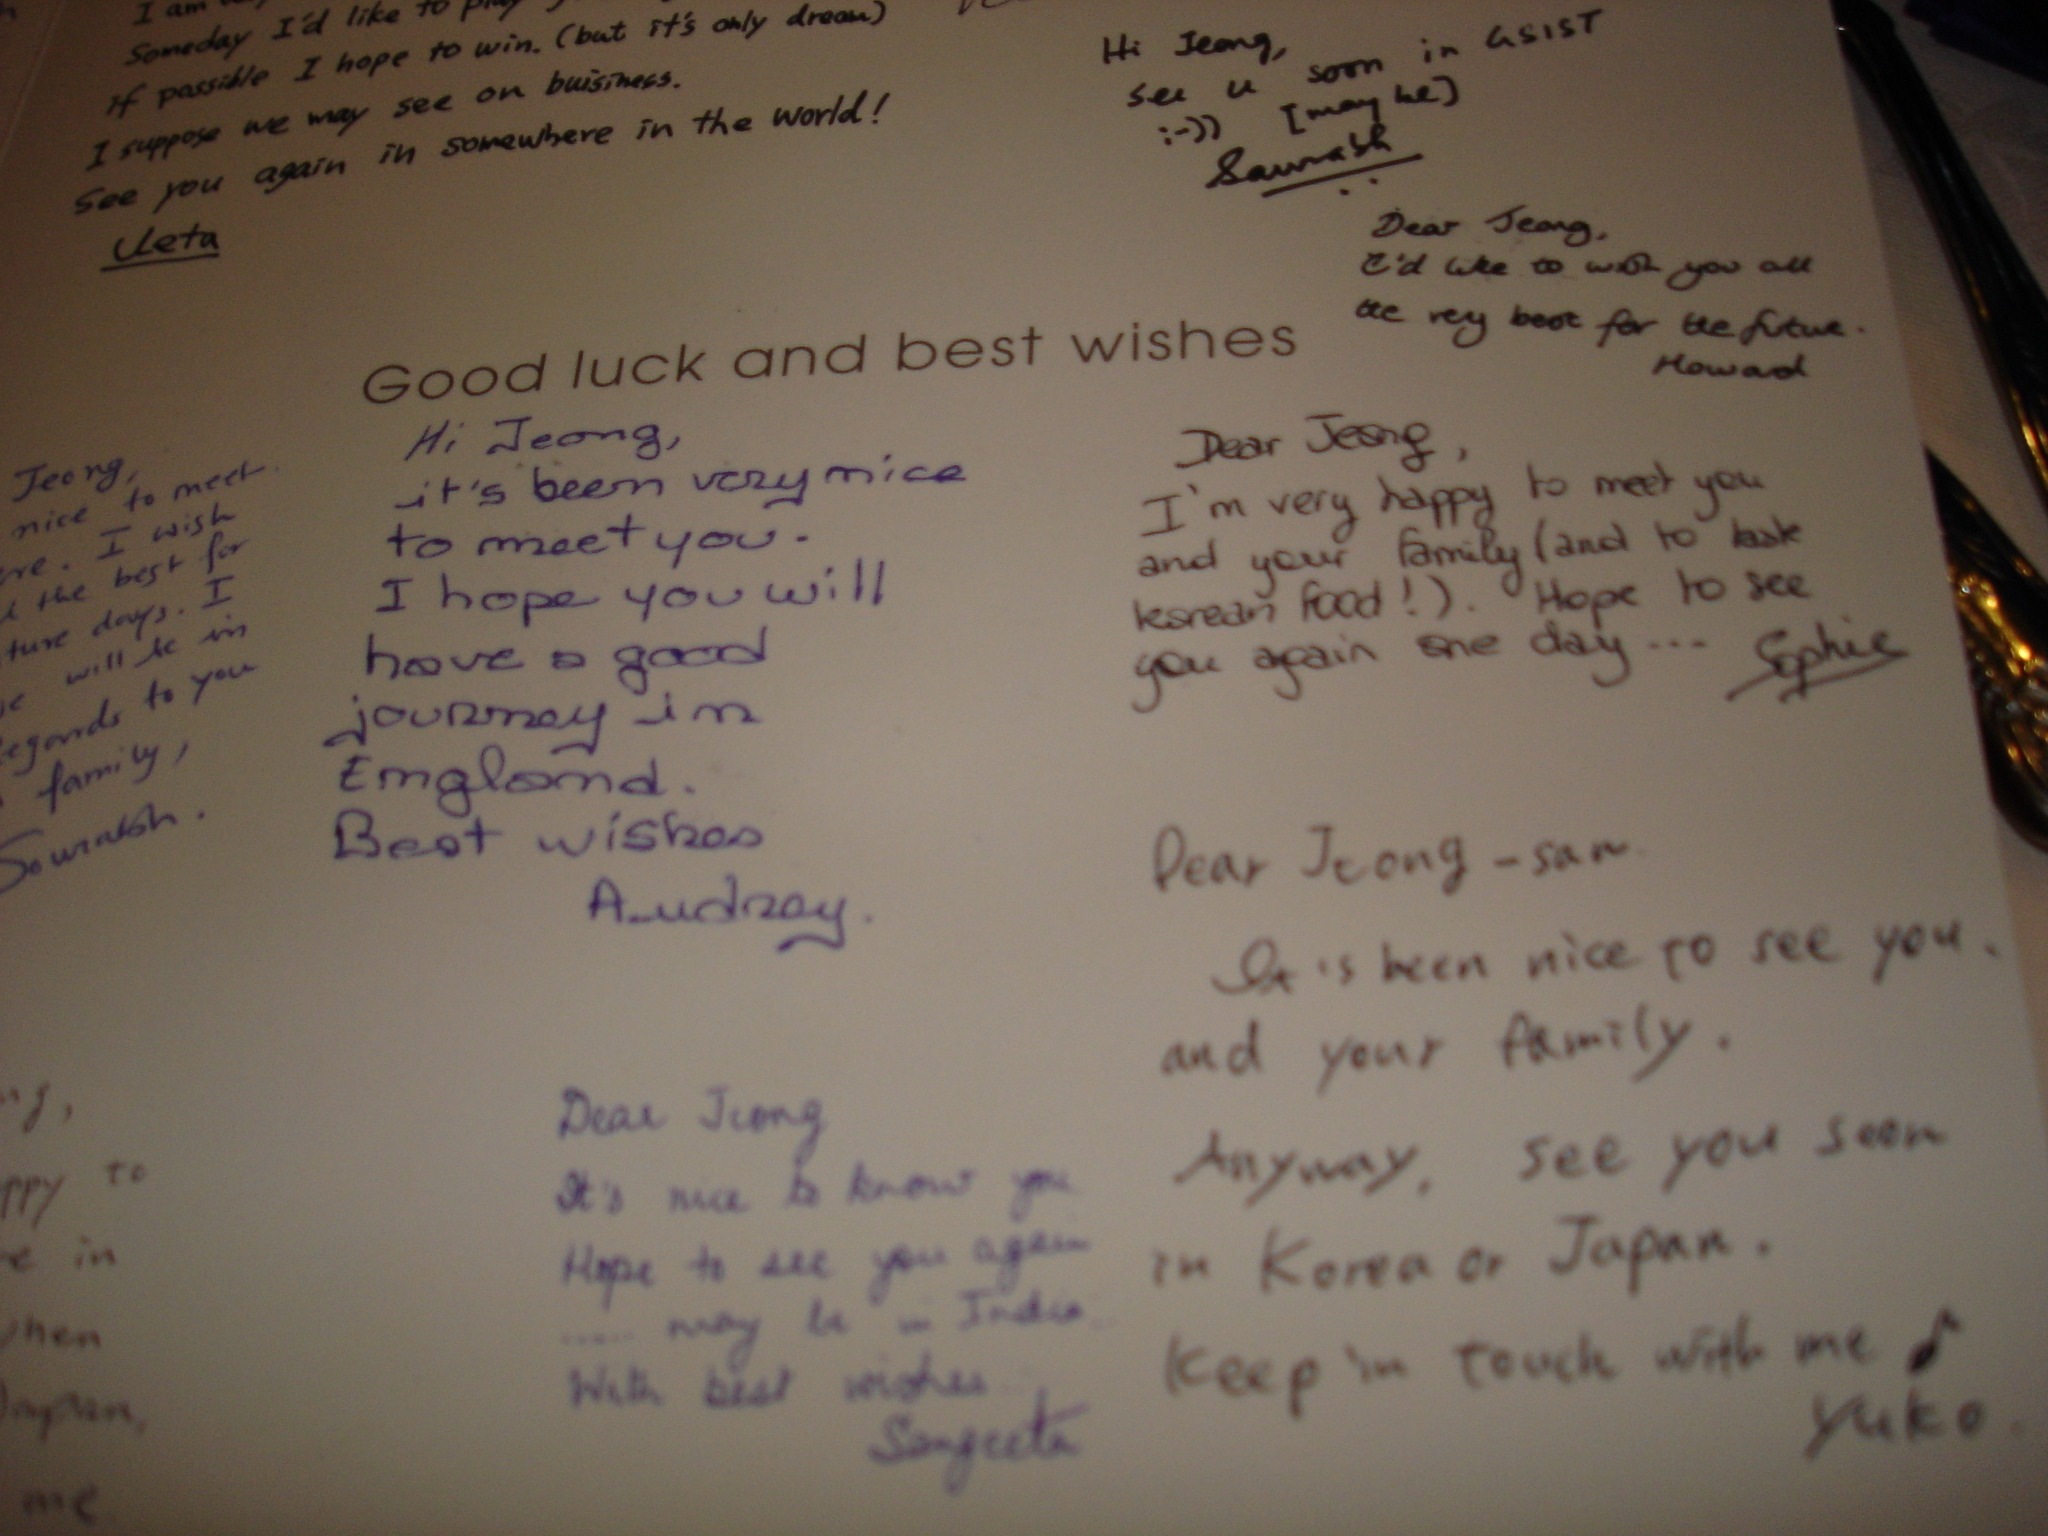 I am
Someday I'd like to play
If possible I hope to win. (but it's only dream)
I suppose we may see on buisiness.
See you again in somewhere in the world!
Ueta
Hi Jeong,
See u soon in GSIST
:-)) [may be)
Saurabh
Dear Jeong,
I'd like to wish you all
the very best for the future.
Howard
Good luck and best wishes
Jeong,
nice to meet
. I wish
the best for
days. I
will be in
regards to you
family,
Sourabh.
Hi Jeong,
it's been very nice
to meet you.
I hope you will
have a good
journey in
England.
Best wishes
Audrey.
Dear Jeong,
I'm very happy to meet you
and your family (and to taste
korean food!). Hope to see
you again one day ...
Sophie
Dear Jeong-san
It's been nice to see you.
and your family.
Anyway, see you soon
in Korea or Japan.
Keep in touch with me ♪
Yuko.
to
in
me
Dear Jeong
It's nice to know you
Hope to see you again
..... may be in India
With best wishes
Sangeeta